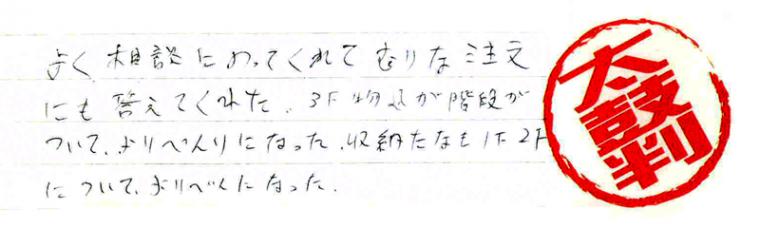 よく相談にのってくれてむりな注文
にも答えてくれた。3F物込が階段が
ついて、よりべんりになった。収納たなも1F2F
について、よりべんになった。
太鼓判